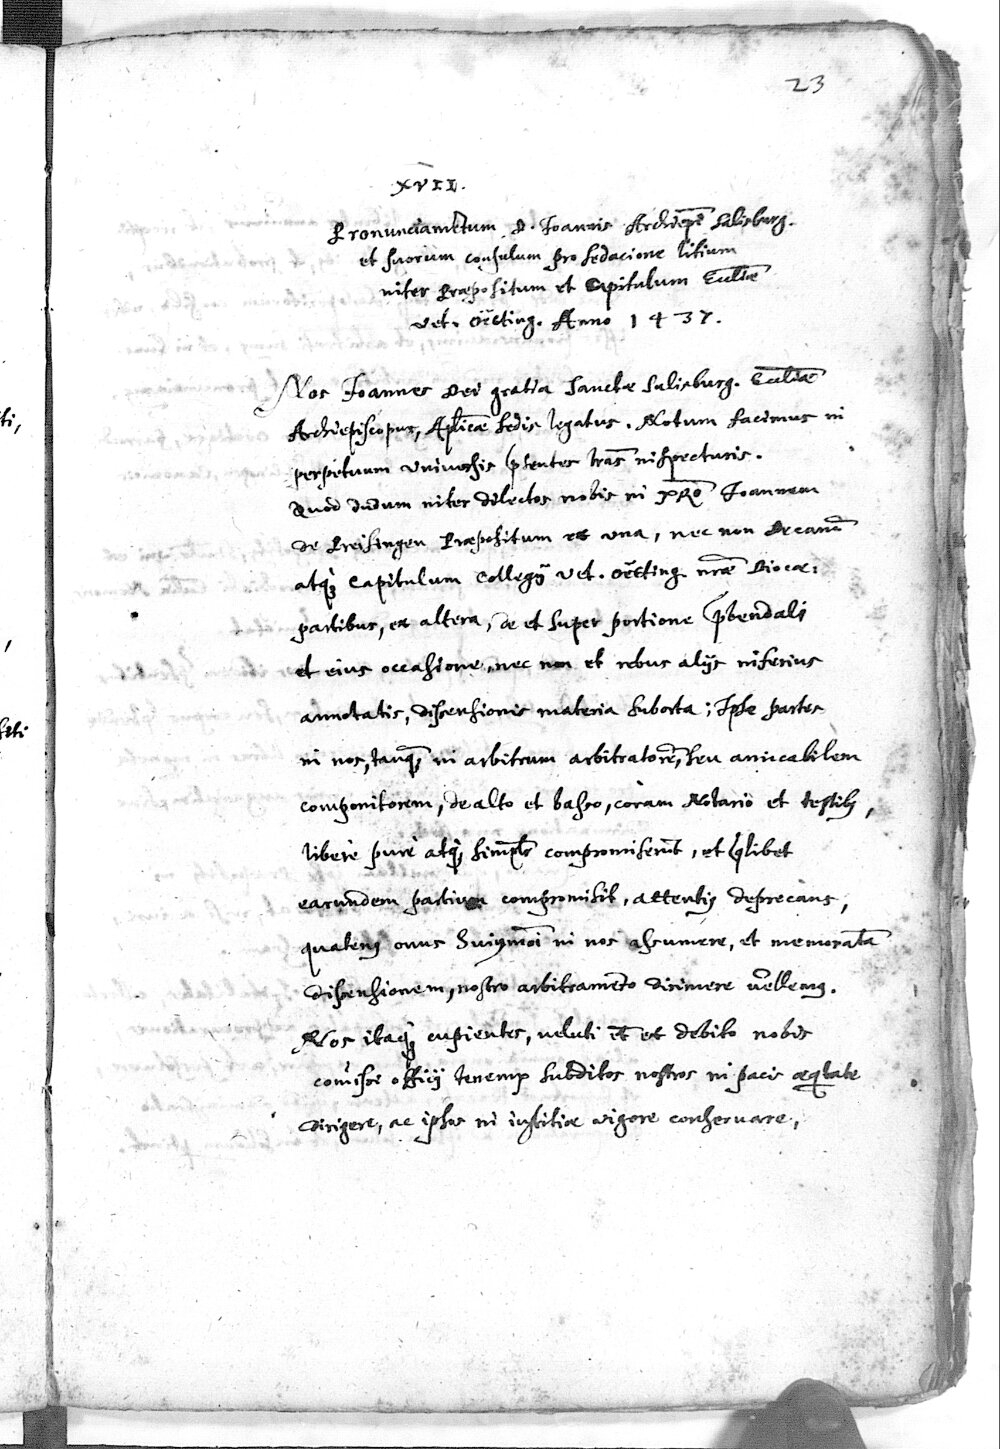 23
XVII.
Pronunciamẽtum D. Joannis Archiep̃i Salisburg.
et suorum consulum pro sedacione litium
inter Præpositum et Capitulum Eccl̃iæ
Vet. Oẽting. Anno 1437.
Nos Joannes Dei gratia Sanctæ Salisburg. Eccl̃iæ
Archiepiscopus, Apl̃icæ Sedis legatus. Notum facimus in
perpetuum universis p̃sentes l̃ras inspecturis.
Quod dudum inter dilectos nobis in XP̃O Joannem
de Preisingen Præpositum ex una, nec non Decanũ
atq̃ Capitulum Collegij Vet. Oẽting. nr̃æ Diocæ:
partibus, ex altera, de et super portione p̃bendali
et eius occasione, nec non et rebus alijs inferius
annotatis, dissensionis materia suborta; Ipsæ partes
in nos, tanq̃ in arbitrum arbitratorẽ, seu amicabilem
compositorem, de alto et basso, coram Notario et testib9,
liberè purè atq̃ simpl̃r compromiserũt, et q̃libet
earundem partium compromisit, attentiq9 deprecans,
quaten9 onus hui9mõi in nos assumere, et memoratã
dissensionem, nostro arbitramẽto dirimere vellem9.
Nos itaq̃ cupientes, veluti et ex debito nobis
com̃issi officij tenemr subditos nostros in pacis æq̃tate
dirigere, ac ipsos in iustitiæ vigore conservare,
ti,
,
sti